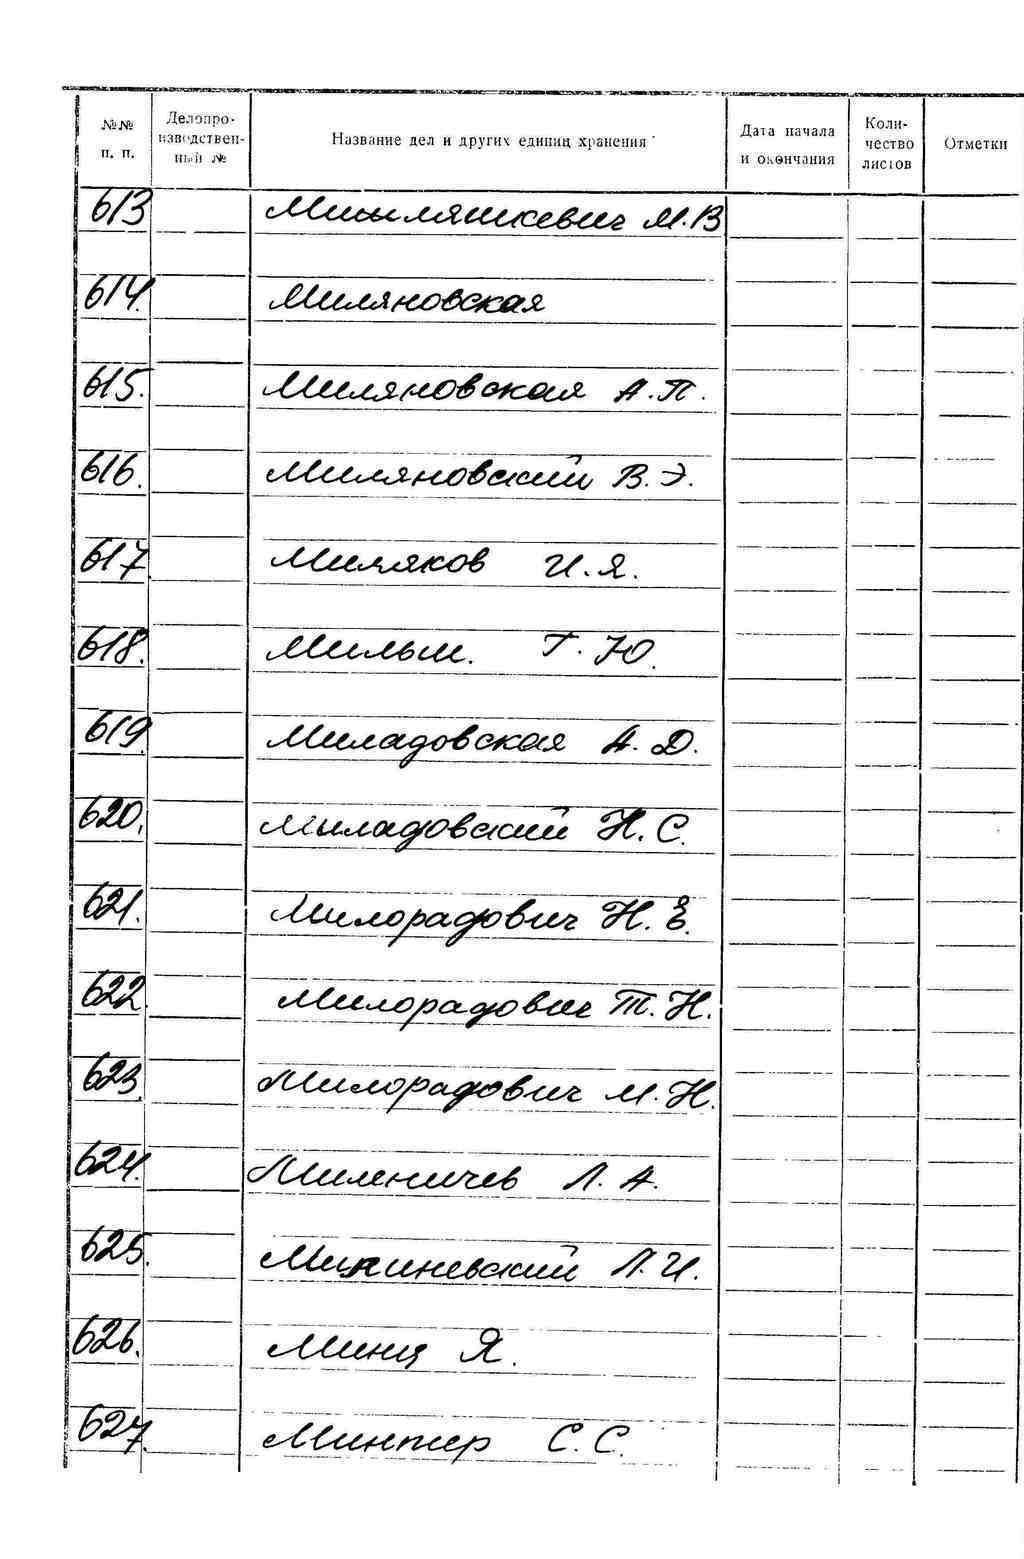 №№ п. п. Делопроизводственный № Название дел и других единиц хранения Дата начала и окончания Количество листов Отметки
613 М.В
614. Миляновская
615. Миляновская А.П.
616. Миляновский В.Э.
617. Миляков И.Я.
618. Г.Ю.
619. Миладовская А.Д.
620. Миладовский Н.С.
621. Милорадович Н.Е.
622. Милорадович Т.Н.
623. Милорадович М.Н.
624. Миленичев Л.А.
625. Л.И.
626. Минц Я.
627. Минтер С.С.